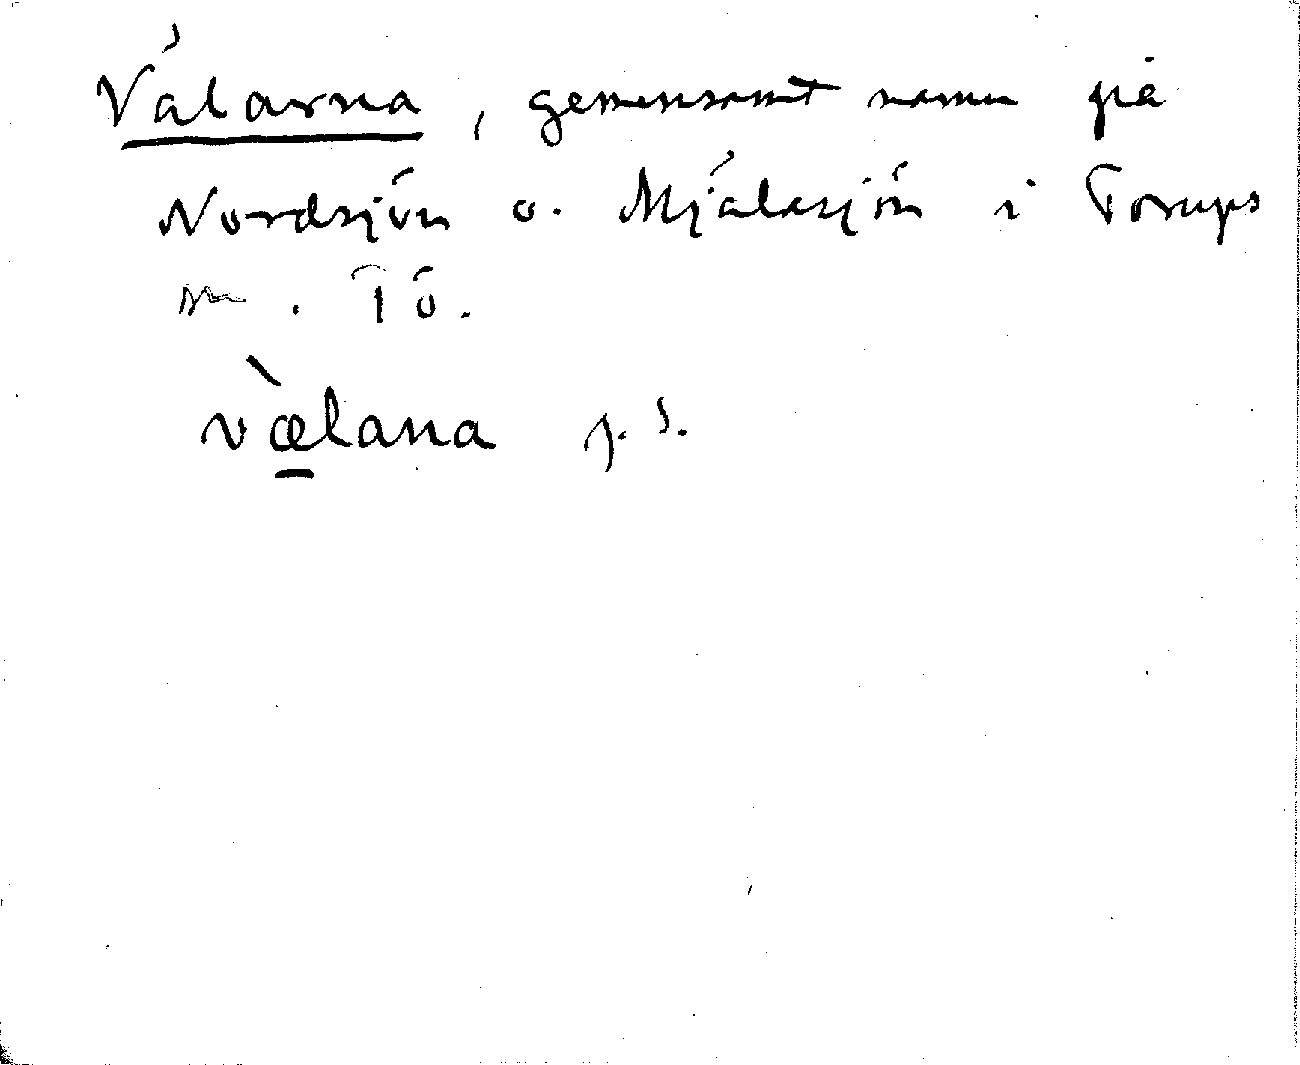 Välarna, gemensamt namn på
Nordsjön o. Mjälasjön i Torups
sn. Tö.
væ̱̀lana j. s.